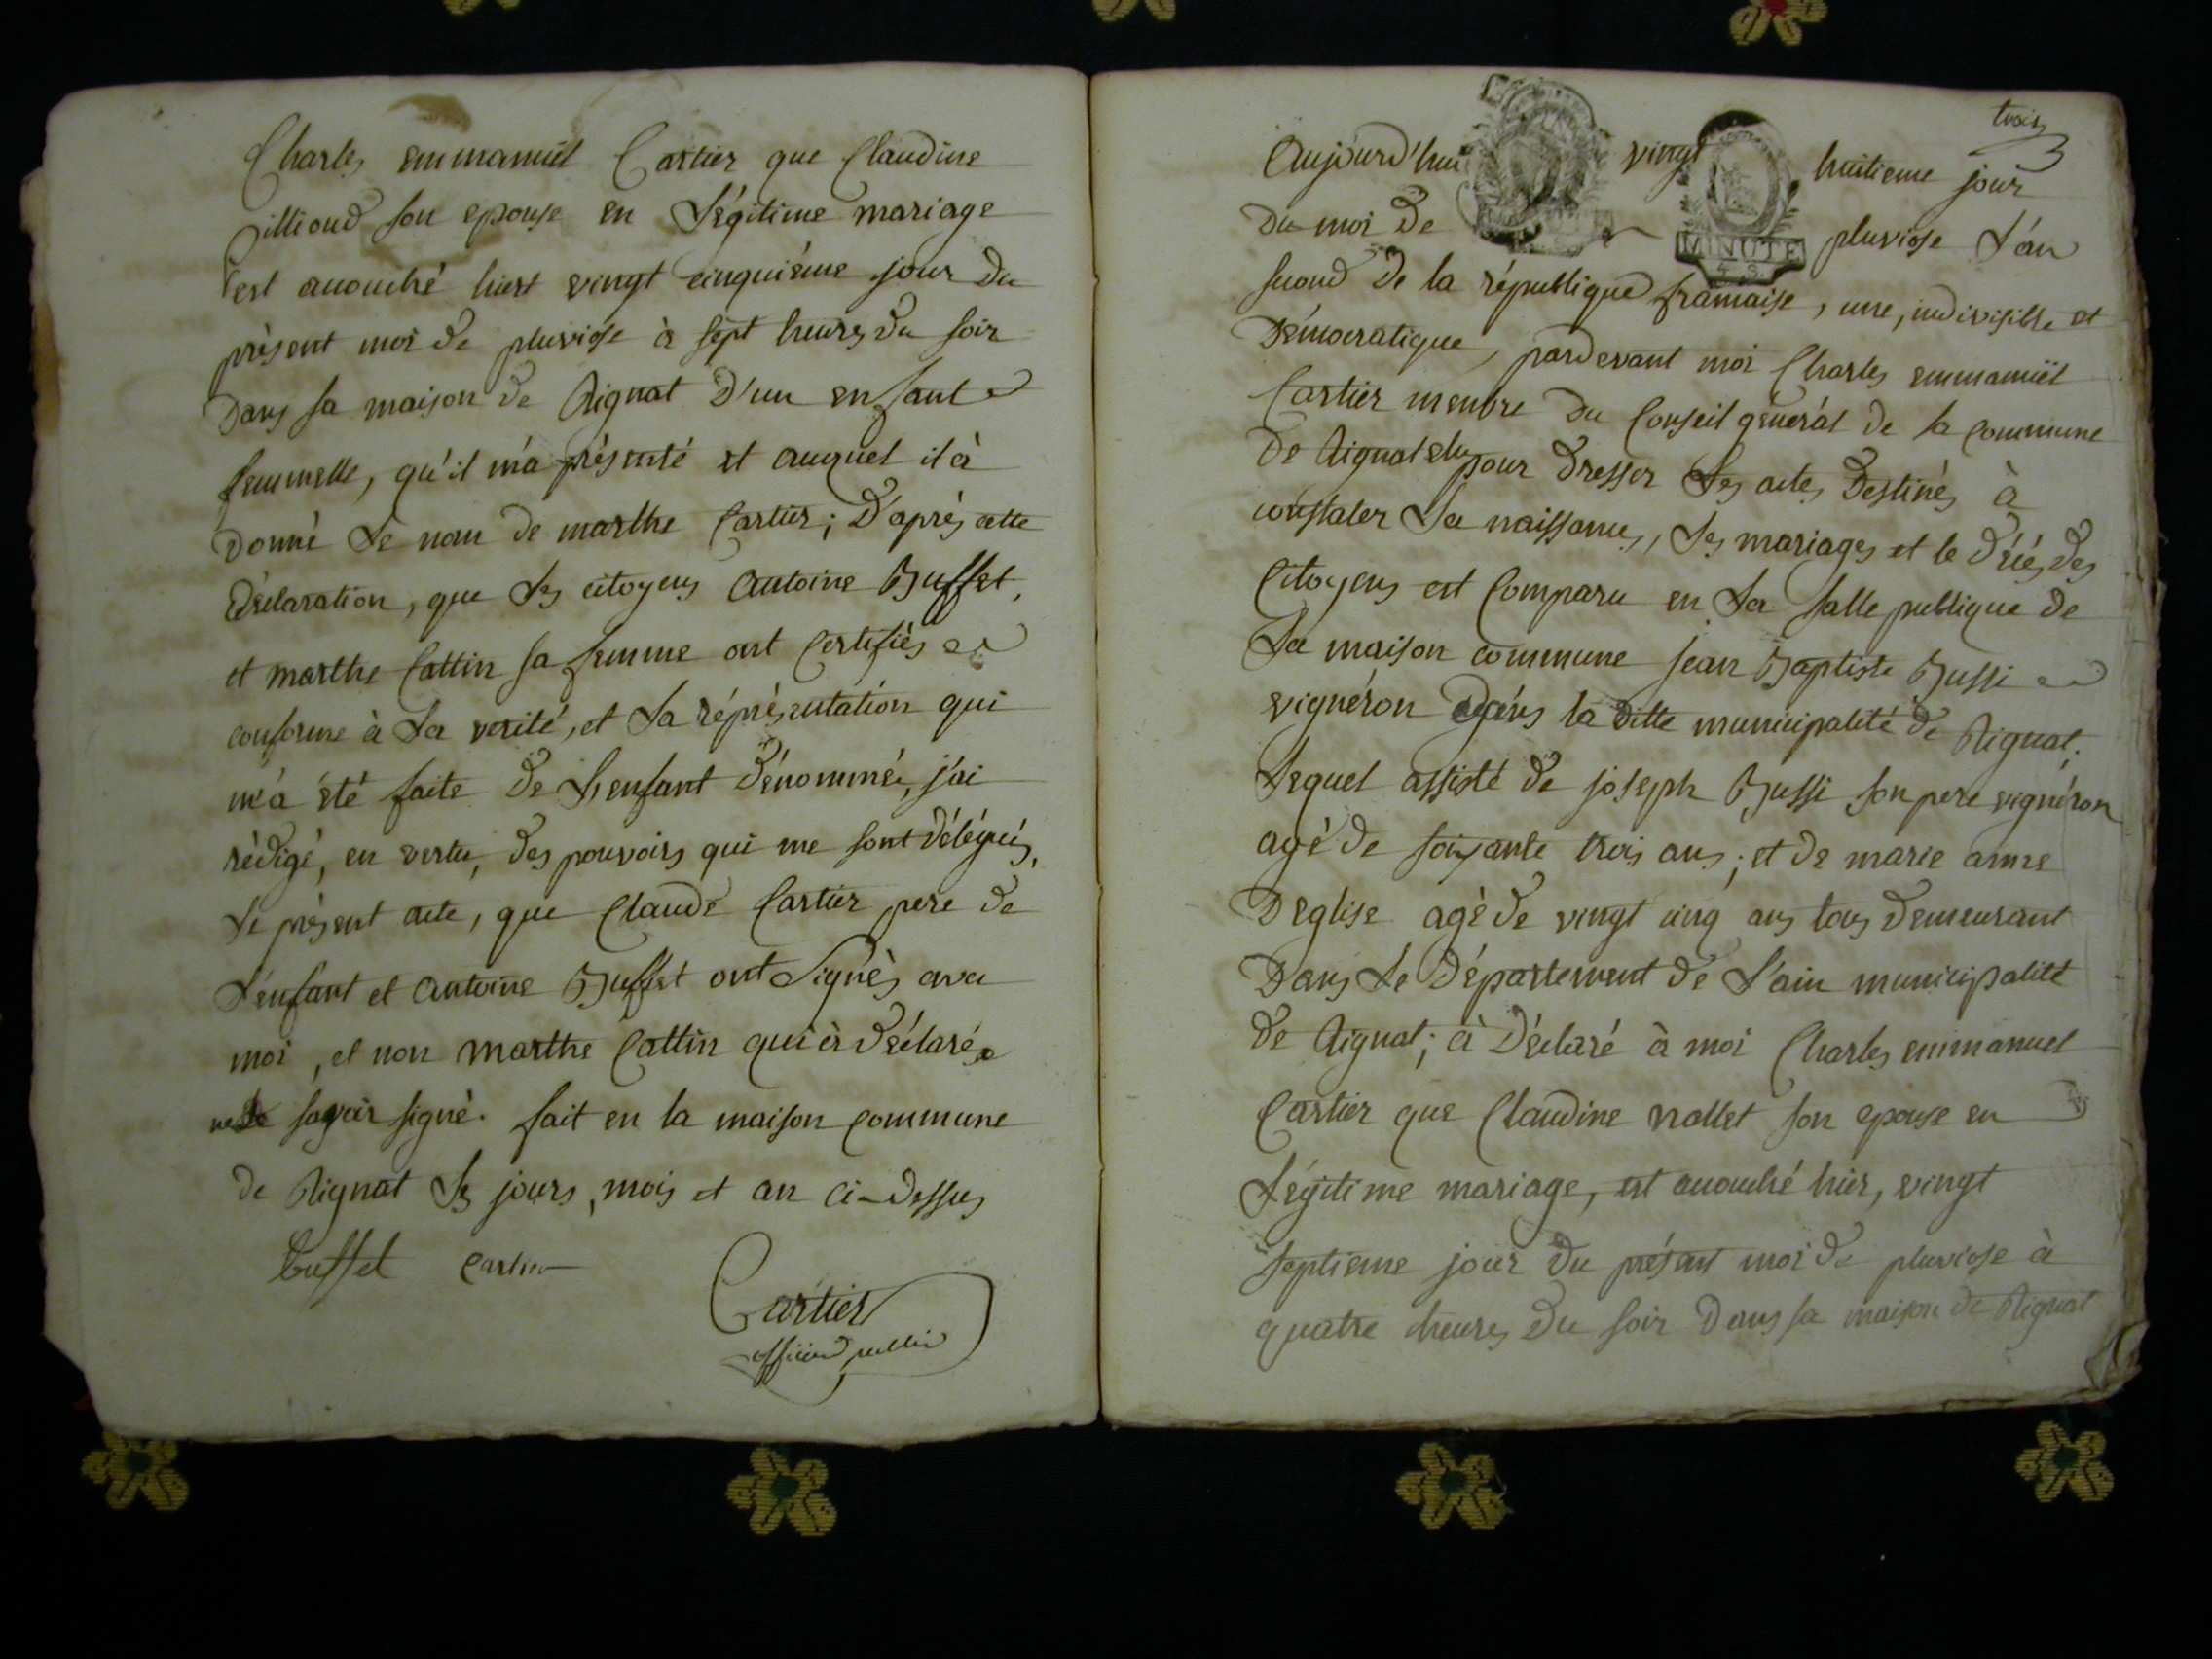 Charles emmanuël Cartier que Claudine
pillioud son epouse en Légitime mariage
est accouché hiert vingt cinquiéme jour du
présent moi de pluviose à sept heures du soir
Dans sa maison de Rignat D'un enfant
femmelle, qu'il m'a présenté et auquel il à
Donné Le nom de marthe Cartier; D'après cette
Déclaration, que Les citoyens Antoine Buffet,
et marthe Cattin sa femme ont Certifiés
conforme à La verité, et La réprésentation qui
m'á été faite de L'enfant dénommé, j'ai
rédigé, en vertu, des pouvoirs qui me sont délégués,
Le présent acte, que Claude Cartier pere de
L'enfant et Antoine Buffet ont Signés avec
moi, et non marthe Cattin qui à déclaré
ne savoir signé. fait en la maison Commune
de Rignat Les jours, mois et an ci-dessus
buffet Cartier
Cartier
officier public
trois
3
Aujourd'hui vingt huitieme jour
Du moi De pluviose L'an
second De la république francaise, une, indivisible et
Démocratique, pardevant moi Charles emmanuël
Cartier menbre du Conseil général de la Commune
De Rignat elu pour dresser Les actes Destinés à
constater La naissance, Les mariages et le décés des
Citoyens est Comparu en La salle publique de
La maison commune jean Baptiste Bussi
vignéron dans la ditte municipalité de Rignat;
Lequel assisté de joseph Bussi son pere vignéron
agé de soixante trois ans; et de marie anne
Deglise agé de vingt cinq ans tous demeurant
Dans Le Département de L'ain municipalité
de Rignat; à Déclaré à moi Charles emmanuel
Cartier que Claudine nallet son epouse en
Légitime mariage, est accouché hier, vingt
septieme jour du présent moi de pluviose à
quatre heures Du soir Dans sa maison de Rignat
MINUTE